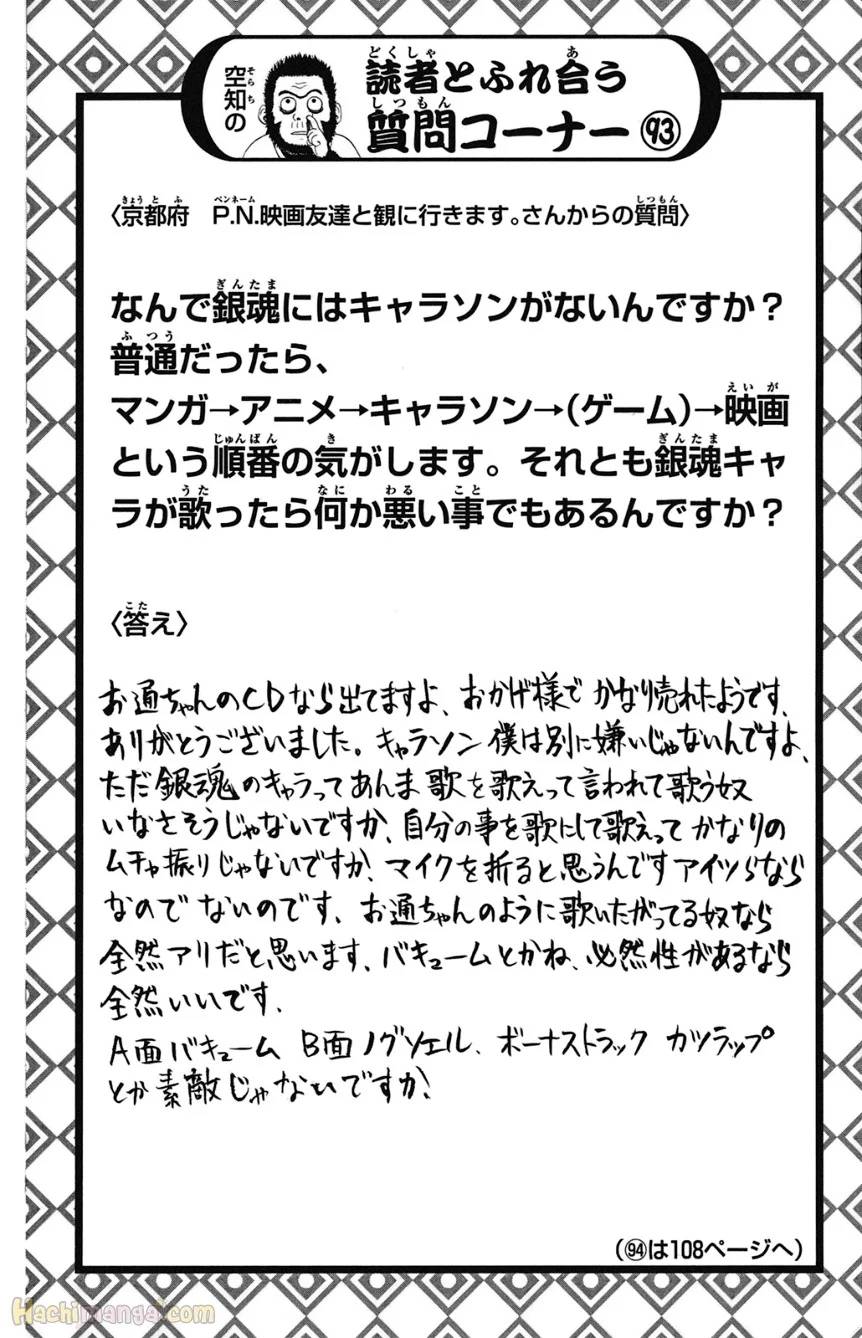 空知の
読者とふれ合う
質問コーナー㉝
〈京都府　P.N.映画友達と観に行きます。さんからの質問〉
なんで銀魂にはキャラソンがないんですか？
普通だったら、
マンガ→アニメ→キャラソン→(ゲーム)→映画
という順番の気がします。それとも銀魂キャ
ラが歌ったら何か悪い事でもあるんですか？
〈答え〉
お通ちゃんのCDなら出てますよ、おかげ様でかなり売れたようです、
ありがとうございました。キャラソン僕は別に嫌いじゃないんですよ、
ただ銀魂のキャラってあんま歌を歌えって言われて歌う奴
いなさそうじゃないですか、自分の事を歌にして歌えってかなりの
ムチャ振りじゃないですか、マイクを折ると思うんですアイツらなら
なのでないのです、お通ちゃんのように歌いたがってる奴なら
全然アリだと思います、バキュームとかね、必然性があるなら
全然いいです、
A面バキューム B面ノグソェル、ボーナストラック カツラップ
とか素敵じゃないですか、
(94は108ページへ)
Hachimanga.com